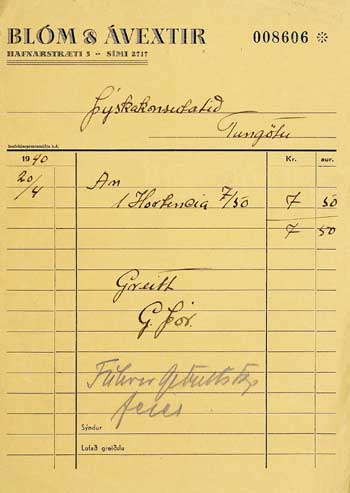 BLÓM & ÁVEXTIR
HAFNARSTRÆTI 5 -- SÍMI 2717
008606
Þýskakonsulatið
Túngötu
Ísafoldarprentsmiðja h.f.
1940 Kr. aur.
20/4 An
1 Hortensia 7/50 7 50
7 50
Greitt
G. Þór.
Führer Geburtstag
feier
Sýndur
Lofað greiðslu